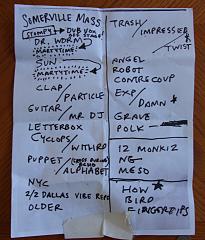 SOMERVILLE MASS
STOMPY → DUB VOX
OFF STAGE
DR. WORM
MARYTIME
SUN
MARYTIME
CLAP
/ PARTICLE
GUITAR
/ MR DJ
LETTERBOX
CYCLOPS
/ WITHIRD
PUPPET
ECHO
/ ALPHABET
NYC
2/2 DALLAS VIBE REPO
OLDER
TRASH
/ IMPRESSED
TWIST
ANGEL
ROBOT
CONTRECOUP
EXP
/ DAMN
GRAVE
POLK
12 MONKIZ
NE
MESO
HOW
BIRD
FINGERTIPS